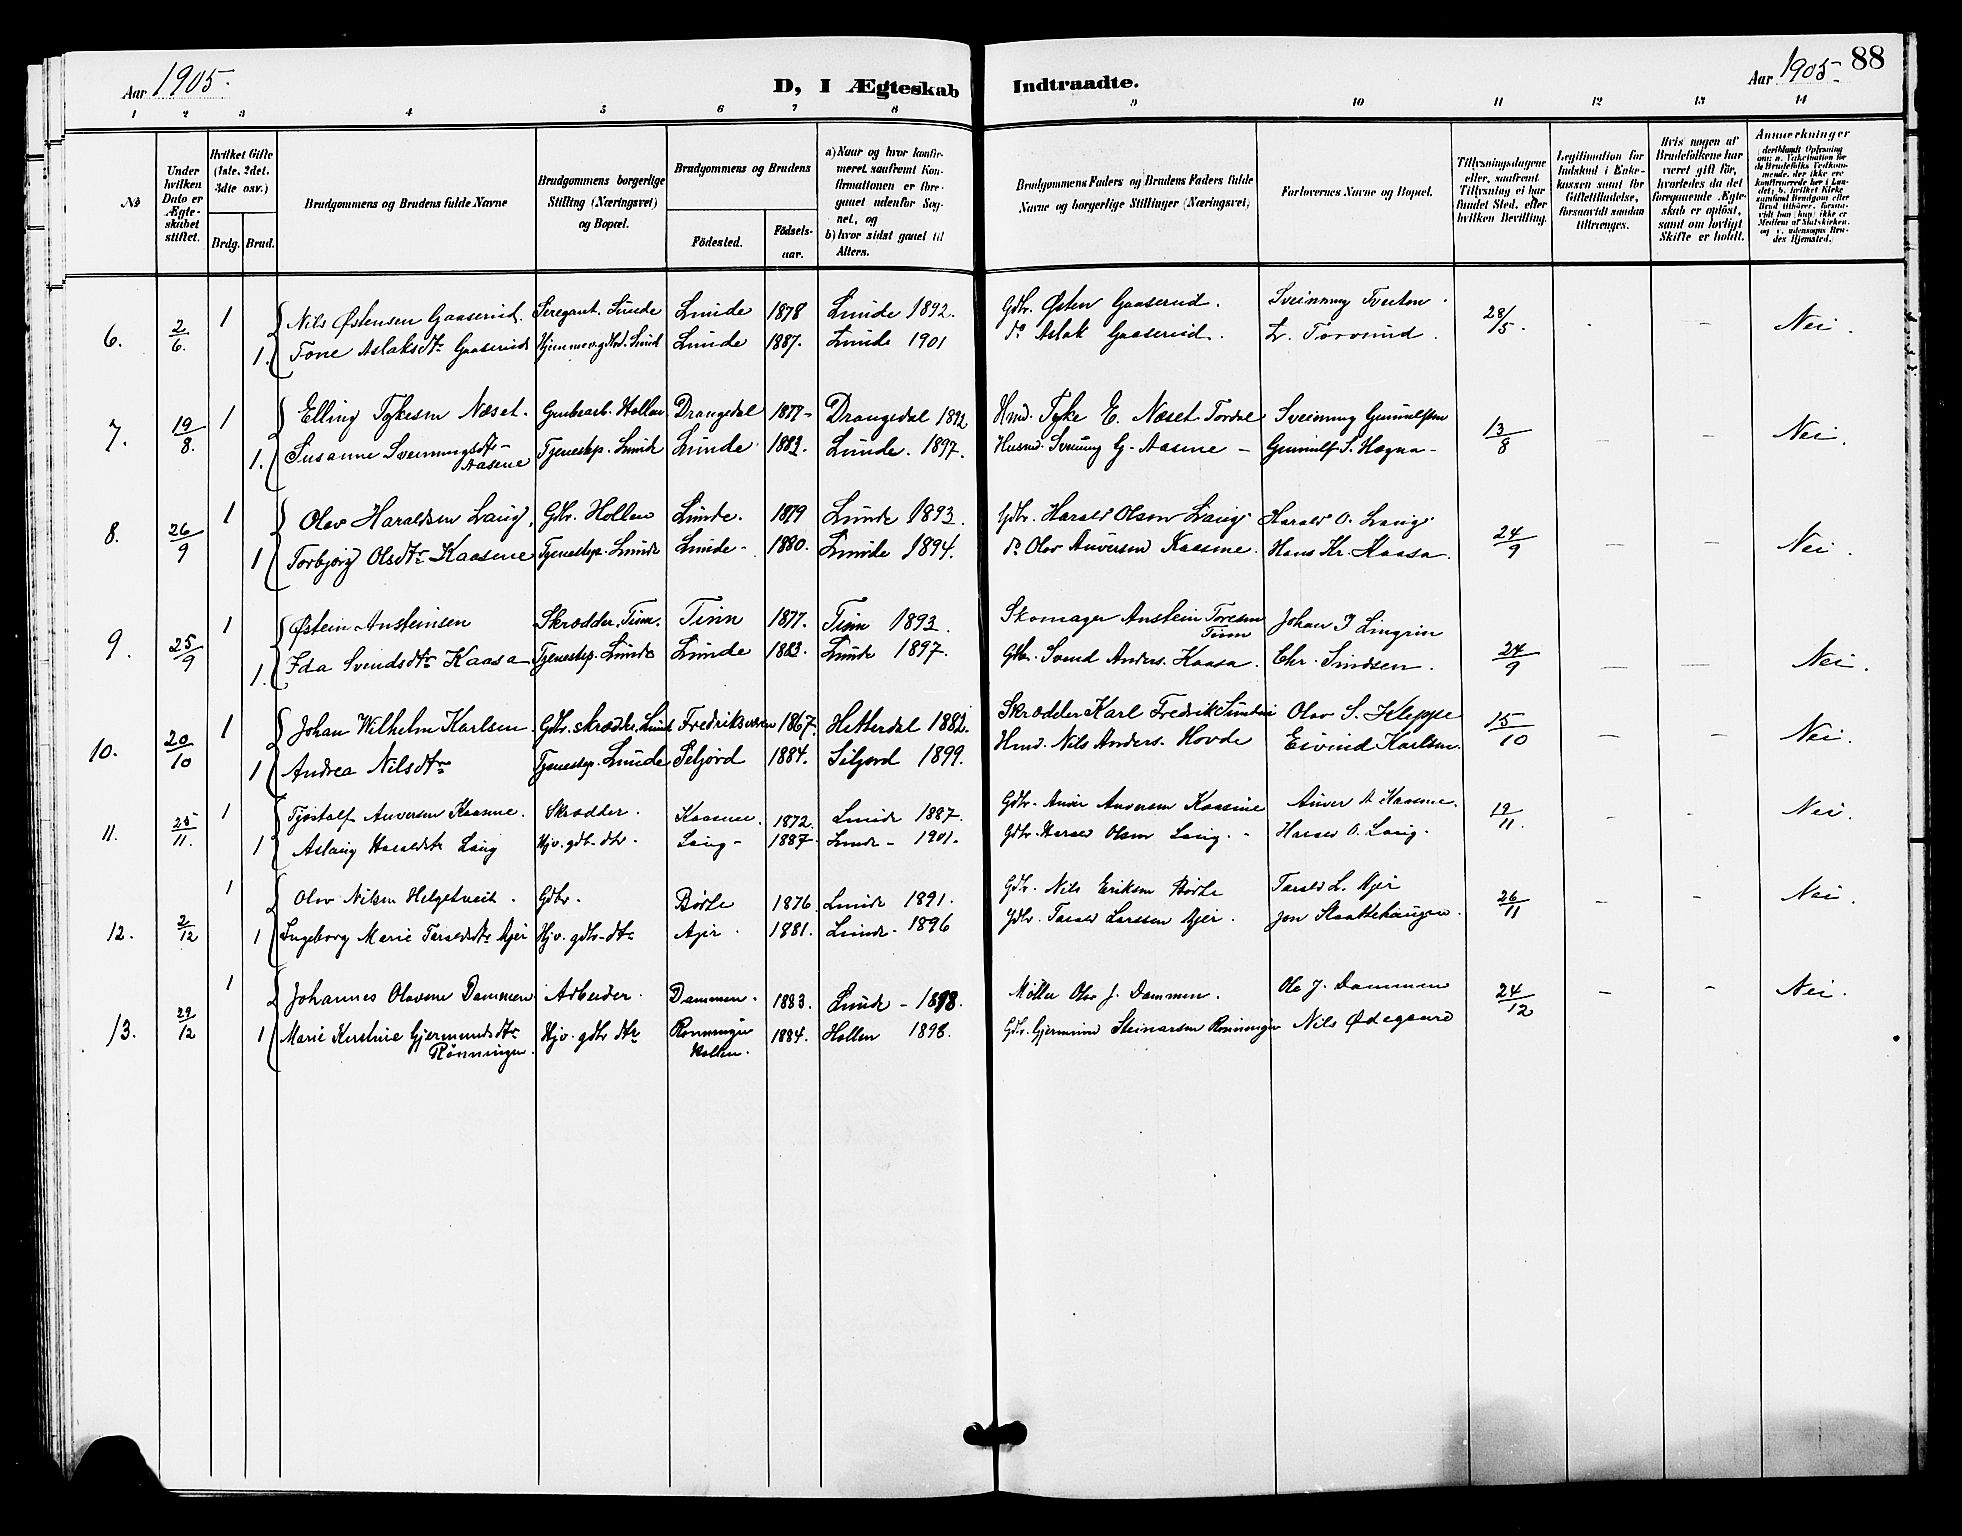 Aar 1905.
D, I Ægteskab Indtraadte.
Aar 1905.
88
1 2 3 4 5 6 7 8 9 10 11 12 13 14
№
Under hvilken Dato er Ægteskabet stiftet.
Hvilket Gifte (1ste, 2det, 3die osv.)
Brdg. Brud.
Brudgommens og Brudens fulde Navne
Brudgommens borgerlige Stilling (Næringsvei) og Bopæl.
Brudgommens og Brudens
Födested.
Födselsaar.
a) Naar og hvor konfirmeret, saafremt Konfirmationen er foregaaet udenfor Sognet, og
b) hvor sidst gaaet til Alters.
Brudgommens Faders og Brudens Faders fulde Navne og borgerlige Stillinger (Næringsvei)
Forlovernes Navne og Bopæl.
Tillysningsdagene eller, saafremt Tillysning ei har fundet Sted, efter hvilken Bevilling.
Legitimation for Indskud i Enkekassen samt for Giftetilladelse, forsaavidt saadan tiltrænges.
Hvis nogen af Brudefolkene har været gift för, hvorledes da det foregaaende Ægteskab er oplöst, samt om lovligt Skifte er holdt.
Anmerkninger (deriblandt Oplysning om: a. Vakcination for de Brudefolks Vedkommende, der ikke ere konfirmerede her i Landet; b. hvilket Kirkesamfund Brudgom eller Brud tilhører, forsaavidt han (hun) ikke er Medlem af Statskirken, og c. udensogns Brudes Hjemsted.
6. 2/6. 1 Nils Østensen Gaaserud. Seregant. Lunde Lunde 1878 Lunde 1892. Gdbr. Østen Gaaserud. Sveinung Tveiten. 28/5. - – Nei.
1. Tone Aslaksdtr Gaaserud Hjemmev. Gbd. Lunde Lunde 1887. Lunde 1901 do Aslak Gaaserud. L. Torvund.
7. 19/8. 1 Elling Tykesen Næset. Grubearb. Hollen Drangedal 1877- Drangedal 1892 Hmd. Tyke E. Næset Tordal Sveinung Gunulfsen 13/8 – – Nei.
1. Susanne Sveinungsdtr- Aasene Tjenestep. Lunde Lunde 1883. Lunde. 1897. Husmd. Sveinung G. Aasene - Gunnulf S. Hogna-
8. 26/9 1 Olav Haraldsen Langi, Gdbr. Hollen Lunde. 1879 Lunde 1893. Gdbr. Harald Olsen Langi Harald O. Langi 24/9 – – Nei.
1 Torbjørg Olsdtr Kaasene Tjenestep. Lunde Lunde- 1880. Lunde 1894. do Olav Anversen Kaasene. Hans Kr. Kaasa.
9. 25/9 1 Østein Austeinsen Skrædder, Tinn. Tinn 1877. Tinn 1893. Skomager Anstein Toresen Tinn Johan J Lingrin 24/9 – – Nei.
1. Ida Svendsdtr Kaasa Tjenestep. Lunde Lunde 1883. Lunde 1897. Gdbr. Svend Anders. Kaasa. Chr. Simdsen.
10. 20/10 1 Johan Wilhelm Karlsen Gdbr. skrædder, Lunde Fredriksværn 1867. Hitterdal 1882. Skrædder Karl Fredrik Olav S. Kleppe 15/10 – – Nei.
1 Andrea Nilsdtr Tjenestep. Lunde Seljord 1884. Siljord 1899. Hmd. Nils Anders. Hovde Eivind Karlsen.
11. 25/11. 1 Tjøstolf Anversen Kaasene. Skrædder. Kaasene. 1872. Lunde 1887. Gdbr. Anver Anversen Kaasene Anver A Kaasene. 19/11. - - Nei.
1 Aslaug Haraldsdtr Langi Hjv. gdb-dtr. Langi- 1887. Lunde- 1901. Gdbr. Harald Olsen Langi. - Harald O. Langi.
12. 2/12 1 Olav Nilsen Helgetveit. Gdbr. Børte 1876. Lunde 1891. Gdbr. Nils Eriksen Børte Tarald L. Ajer 26/11 – - Nei.
1 Ingeborg Marie Taraldsdtr Ajer Hjv. gdbr-dtr Ajer. 1881. Lunde- 1896 Gdbr. Tarald Larssen Ajer. Jon Slaattehaugen.
13. 29/12 1 Johannes Olavsen Dammen Arbeider. Dammen. 1883. Lunde - 1898. Møller Olav J. Dammen. Ole J. Dammen 24/12 – - Nei.
1 Marie Kirstine Gjermundsdtr Rønningen. Hjv. gdbr dtr Rønningen Hollen. 1884. Hollen 1898. Gdbr. Gjermund Steinarsen Rønningen Nils Ødegaard